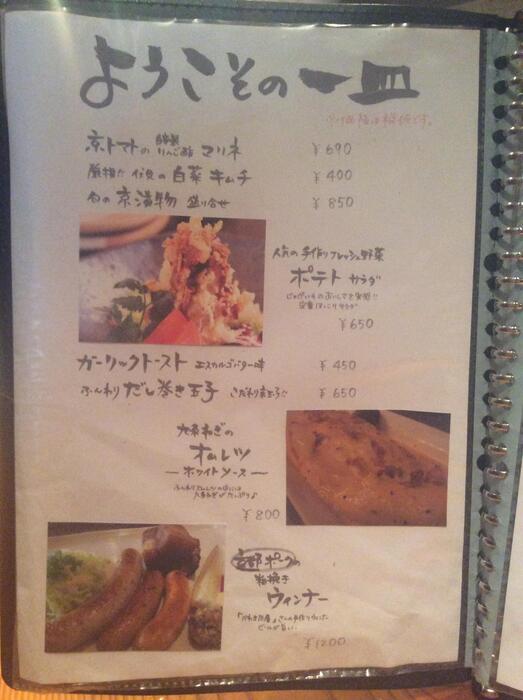 ようこその一皿
京トマトの 自家製りんご酢 マリネ ¥690
白菜キムチ ¥400
旬の京漬物 盛り合せ ¥850
人気の手作りフレッシュ野菜
ポテトサラダ
¥650
ガーリックトースト エスカルゴバター味 ¥450
ふんわりだし巻き玉子 ¥650
九条ねぎの
オムレツ
ーホワイトソースー
九条ねぎがたっぷり♪
¥800
京都ポークの
粗挽き
ウィンナー
¥1200